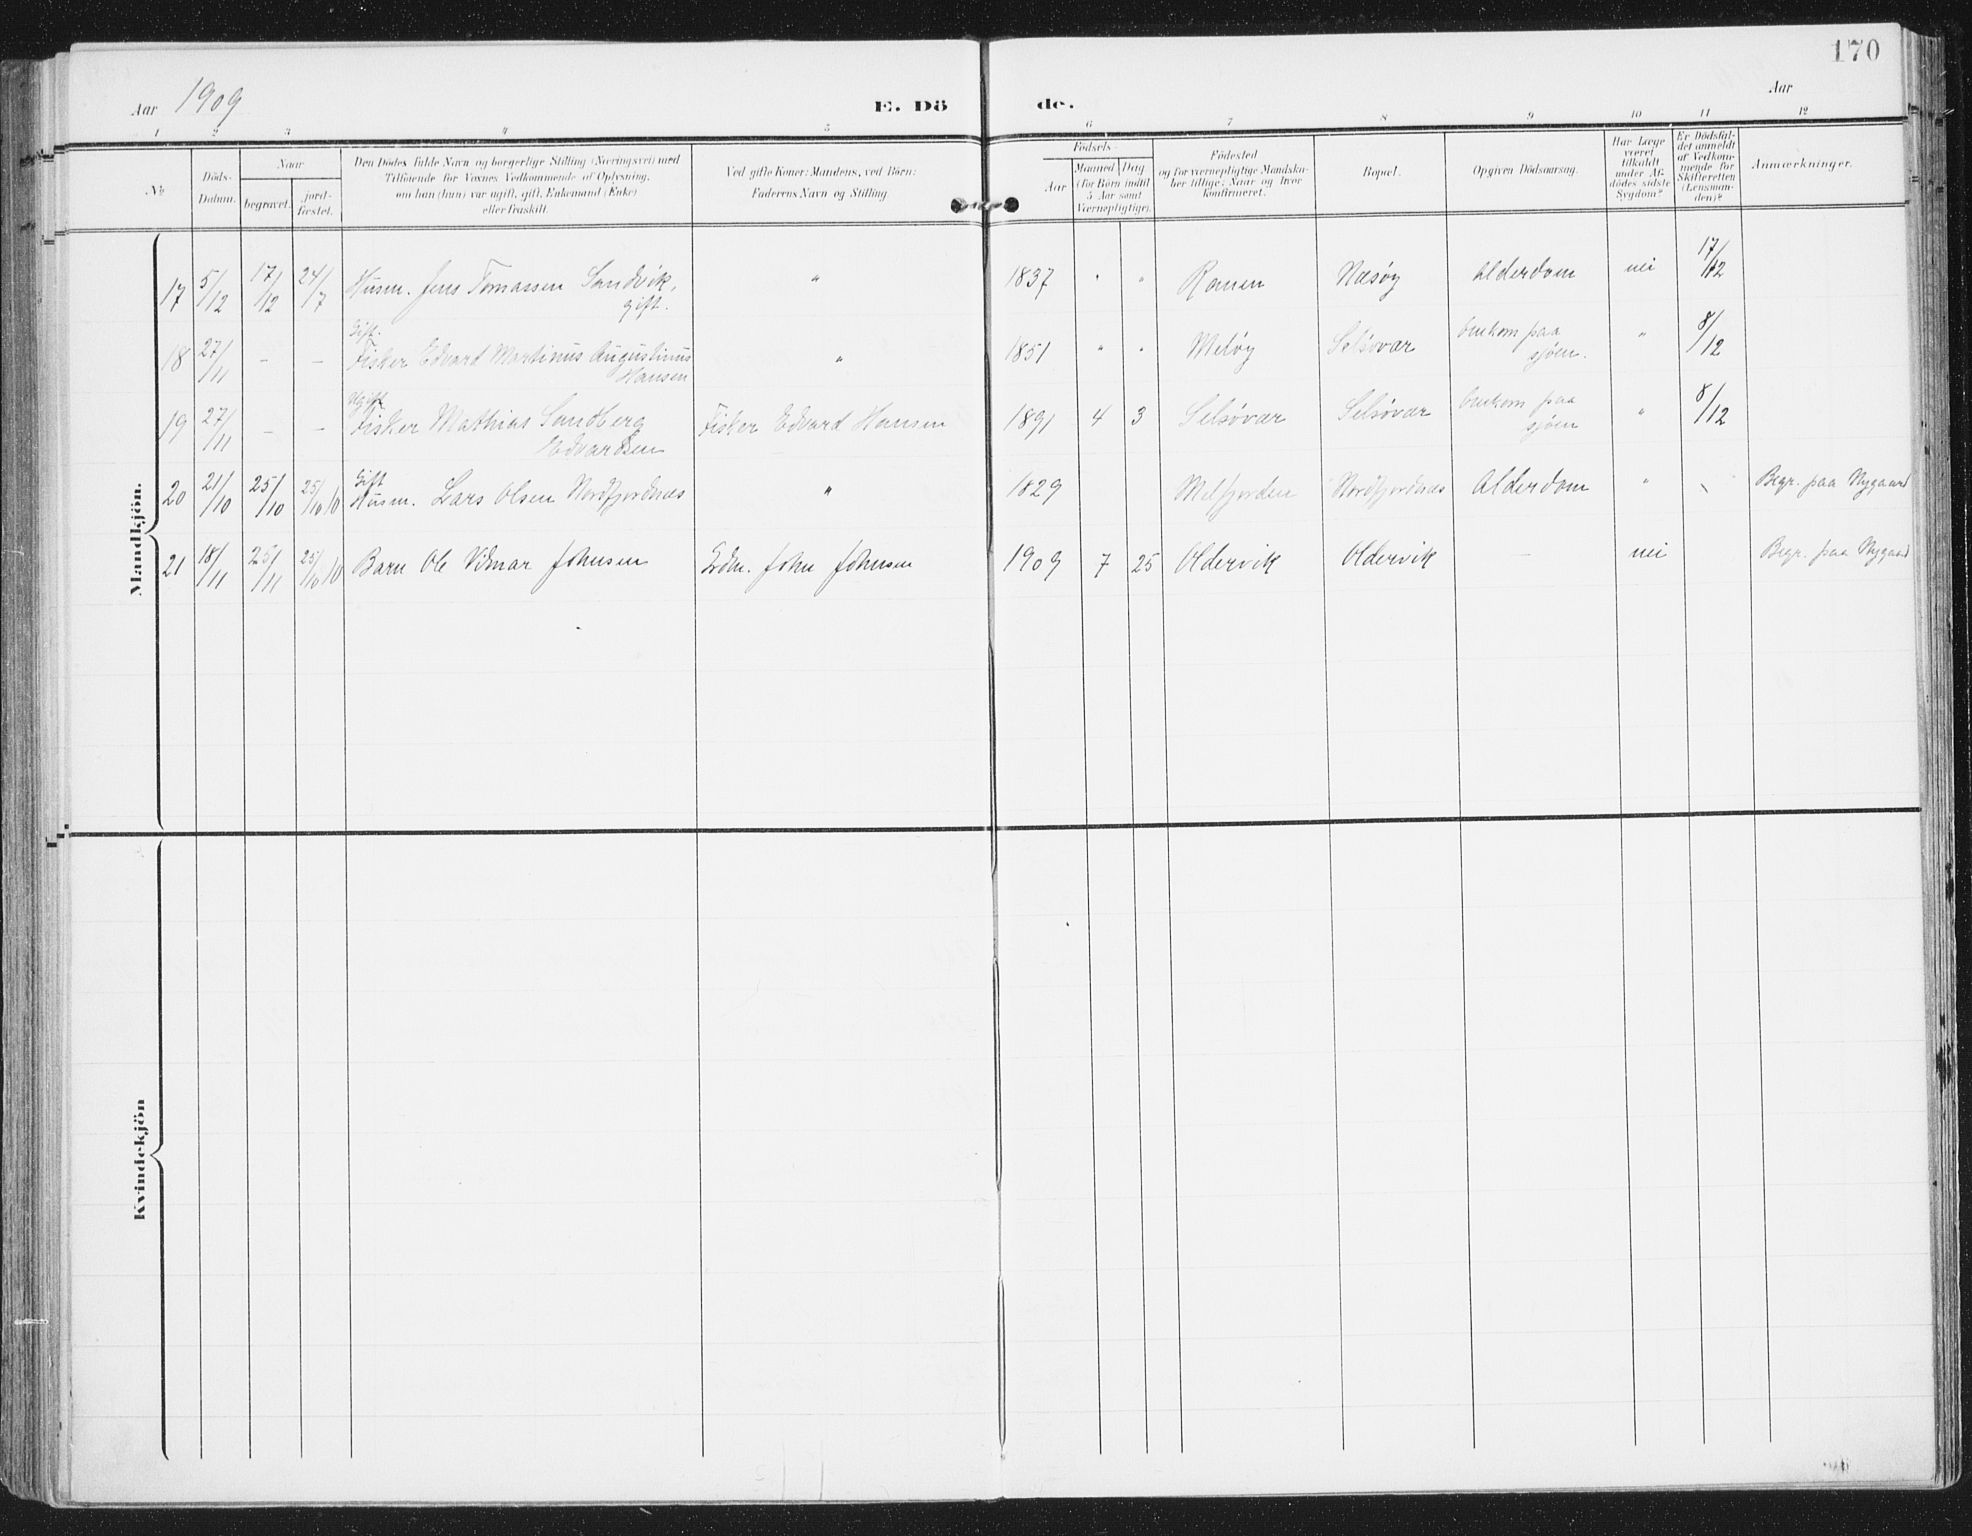 170
Aar 1909
E. Dö de.
Aar
1 2 3 4 5 6 7 8 9 10 11 12
No.
Döds-
Datum.
Naar
begravet.
jord-
fæstet.
Den Dödes fulde Navn og borgerlige Stilling (Næringsvei) med
Tilföiende for Voxnes Vedkommende af Oplysning,
om han (hun) var ugift, gift, Enkemand (Enke)
eller fraskilt.
Ved gifte Koner: Mandens, ved Börn:
Faderens Navn og Stilling.
Födsels-
Aar
Maaned Dag
(for Börn indtil
5 Aar samt
Værnepligtige).
Födested
og for værnepligtige Mandska-
ber tillige: Naar og hvor
konfirmeret.
Bopæl.
Opgiven Dödsaarsag.
Har Læge
været
tilkaldt
under Af-
dödes sidste
Sygdom?
Er Dödsfal-
det anmeldt
af Vedkom-
mende for
Skifteretten
(Lensman-
den)?
Anmærkninger.
Mandkjön.
17 5/12 17/12 24/7 Husm. Jens Tomassen Sandvik, " 1837 " " Ramen Næsöy Alderdom nei 17/12
gift.
Gift.
18 27/11 – – Fisker Edvard Martinus Augustinus " 1851 " " Melöy Selsövær omkom paa " 8/12
Hansen sjöen.
Ugift
19 27/11 – – Fisker Mathias Sandberg Fisker Edvard Hansen 1891 4 3 Selsövær Selsövær omkom paa " 8/12
Edvardsen sjöen
Gift
20 21/10 25/10 25/10 10 Husm. Lars Olsen Nordfjordnæs " 1829 Melfjorden Nordfjordnæs Alderdom " Begr. paa Nygaard
21 18/11 25/11 25/10 10 Barn Ole Vilmar Johnsen Grdm. John Johnsen 1909 7 25 Oldervik Oldervik — nei Begr. paa Nygaard
Kvindekjön